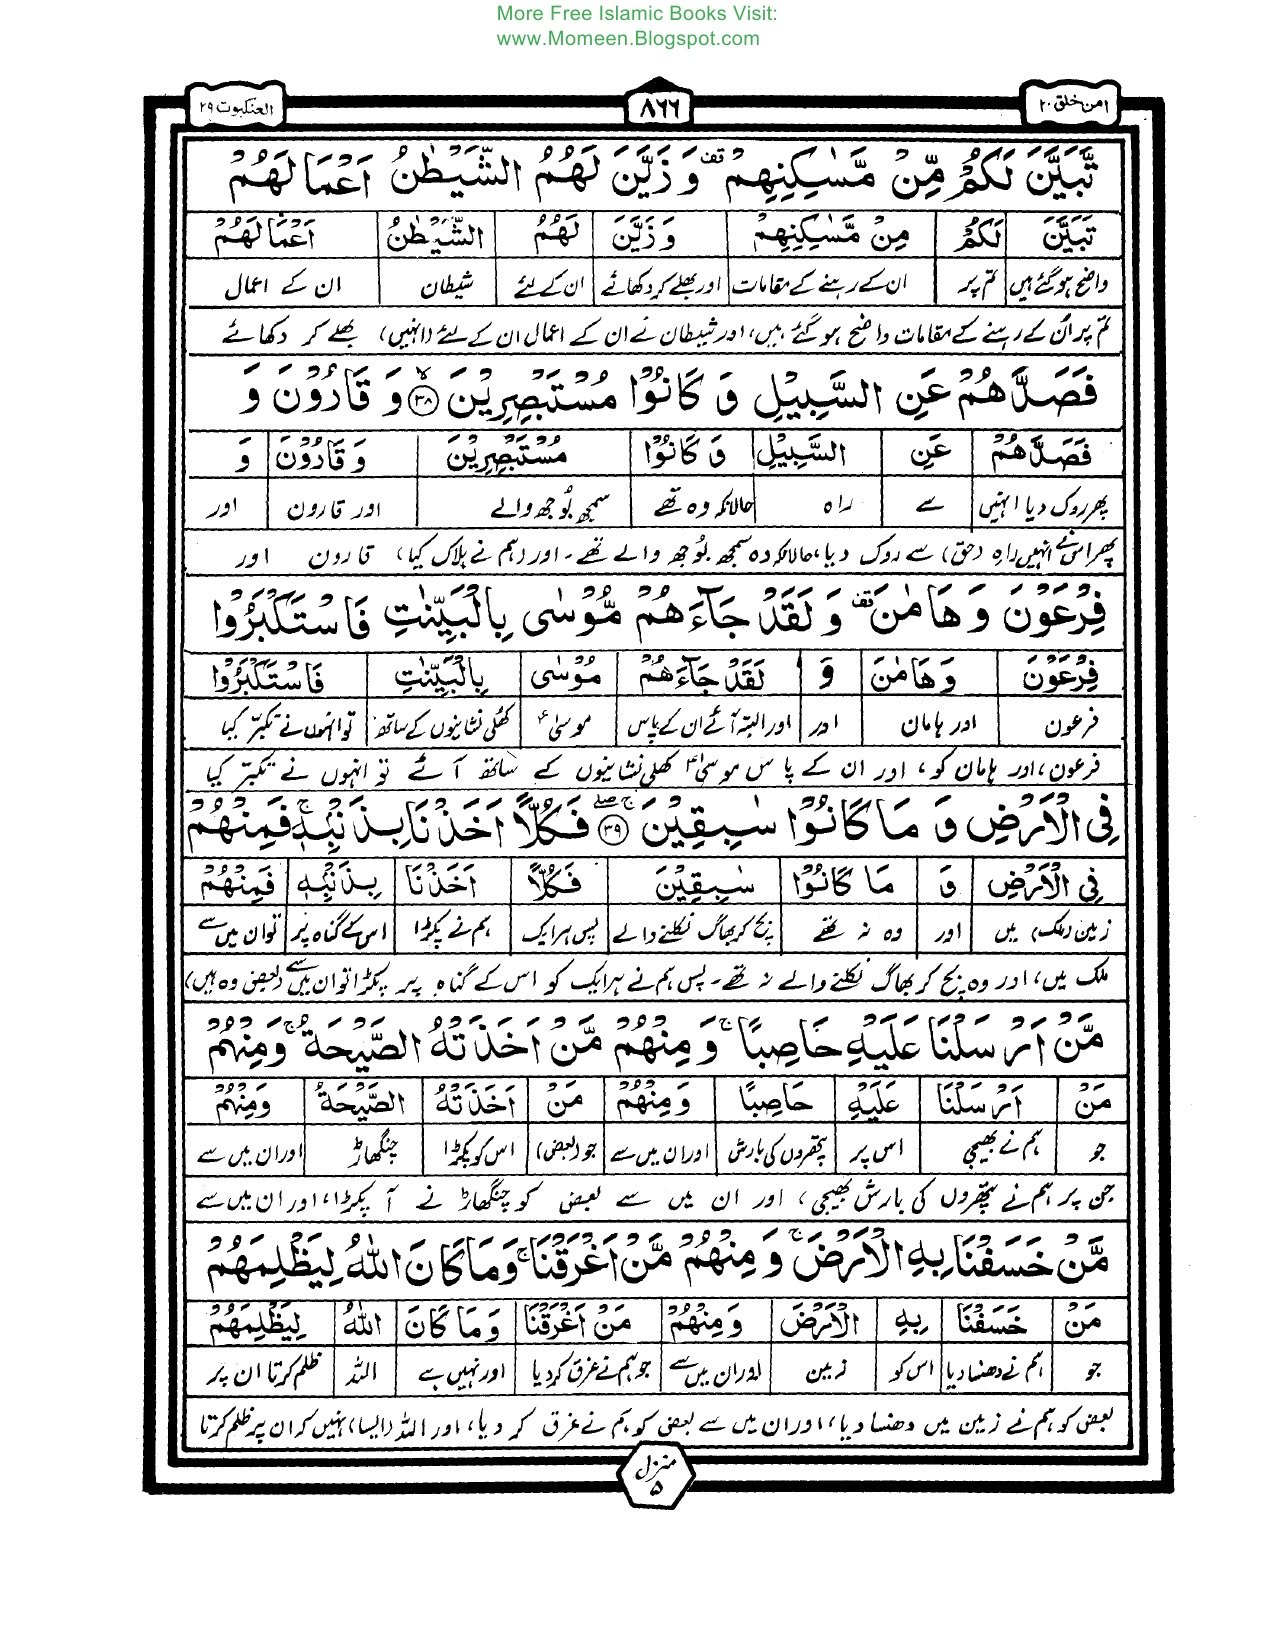 More Free Islamic Books Visit:
www.Momeen.Blogspot.com
امن خلق ۲۰
۸۶۶
العنکبوت ۲۹
تَّبَيَّنَ لَكُمْ مِّنْ مَّسٰكِنِهِمْ ۫ وَ زَيَّنَ لَهُمُ الشَّيْطٰنُ اَعْمَالَهُمْ
تَبَيَّنَ لَكُمْ مِنْ مَّسٰكِنِهِمْ وَ زَيَّنَ لَهُمُ الشَّيْطٰنُ اَعْمَالَهُمْ
واضح ہوگئے ہیں تم پر ان کے رہنے کے مقامات اور بھلے کر دکھائے ان کے لئے شیطان ان کے اعمال
تم پر اُن کے رہنے کے مقامات واضح ہو گئے ہیں، اور شیطان نے ان کے اعمال ان کے لئے (انہیں) بھلے کر دکھائے
فَصَدَّهُمْ عَنِ السَّبِيْلِ وَ كَانُوْا مُسْتَبْصِرِيْنَ ۙ﴿۳۸﴾ وَ قَارُوْنَ وَ
فَصَدَّهُمْ عَنِ السَّبِيْلِ وَ كَانُوْا مُسْتَبْصِرِيْنَ وَ قَارُوْنَ وَ
پھر روک دیا انہیں سے راہ حالانکہ وہ تھے سمجھ بُوجھ والے اور قارون اور
پھر اس نے انہیں راہِ (حق) سے روک دیا، حالانکہ وہ سمجھ بُوجھ والے تھے۔ اور (ہم نے ہلاک کیا) قارون اور
فِرْعَوْنَ وَ هَامٰنَ ۫ وَ لَقَدْ جَآءَهُمْ مُّوْسٰى بِالْبَيِّنٰتِ فَاسْتَكْبَرُوْا
فِرْعَوْنَ وَ هَامٰنَ وَ لَقَدْ جَآءَهُمْ مُوْسٰى بِالْبَيِّنٰتِ فَاسْتَكْبَرُوْا
فرعون اور ہامان اور اور البتہ آئے ان کے پاس موسیٰؑ کھلی نشانیوں کے ساتھ تو انہوں نے تکبّر کیا
فرعون، اور ہامان کو، اور ان کے پاس موسیٰؑ کھلی نشانیوں کے ساتھ آئے تو انہوں نے تکبّر کیا
فِى الْاَرْضِ وَ مَا كَانُوْا سٰبِقِيْنَ ﴿۳۹﴾ فَكُلًّا اَخَذْنَا بِذَنْۢبِهٖ ۚ فَمِنْهُمْ
فِى الْاَرْضِ وَ مَا كَانُوْا سٰبِقِيْنَ فَكُلًّا اَخَذْنَا بِذَنْۢبِهٖ فَمِنْهُمْ
زمین (ملک) میں اور وہ نہ تھے بچ کر بھاگ نکلنے والے پس ہر ایک ہم نے پکڑا اس کے گناہ پر تو ان میں سے
ملک میں، اور وہ بچ کر بھاگ نکلنے والے نہ تھے۔ پس ہم نے ہر ایک کو اس کے گناہ پر پکڑا تو ان میں سے (بعض وہ ہیں)
مَّنْ اَرْسَلْنَا عَلَيْهِ حَاصِبًا ۚ وَ مِنْهُمْ مَّنْ اَخَذَتْهُ الصَّيْحَةُ ۚ وَ مِنْهُمْ
مَنْ اَرْسَلْنَا عَلَيْهِ حَاصِبًا وَ مِنْهُمْ مَنْ اَخَذَتْهُ الصَّيْحَةُ وَ مِنْهُمْ
جو ہم نے بھیجی اس پر پتھروں کی بارش اور ان میں سے جو (بعض) اس کو پکڑا چنگھاڑ اور ان میں سے
جن پر ہم نے پتھروں کی بارش بھیجی، اور ان میں سے بعض کو چنگھاڑ نے آ پکڑا، اور ان میں سے
مَّنْ خَسَفْنَا بِهِ الْاَرْضَ ۚ وَ مِنْهُمْ مَّنْ اَغْرَقْنَا ۚ وَ مَا كَانَ اللّٰهُ لِيَظْلِمَهُمْ
مَنْ خَسَفْنَا بِهِ الْاَرْضَ وَ مِنْهُمْ مَنْ اَغْرَقْنَا وَ مَا كَانَ اللّٰهُ لِيَظْلِمَهُمْ
جو ہم نے دھنسا دیا اس کو زمین اور ان میں سے جو ہم نے غرق کر دیا اور نہیں ہے اللہ ظلم کرتا ان پر
بعض کو ہم نے زمین میں دھنسا دیا، اور ان میں سے بعض کو ہم نے غرق کر دیا، اور اللہ (ایسا) نہیں کہ ان پر ظلم کرتا
منزل ۵